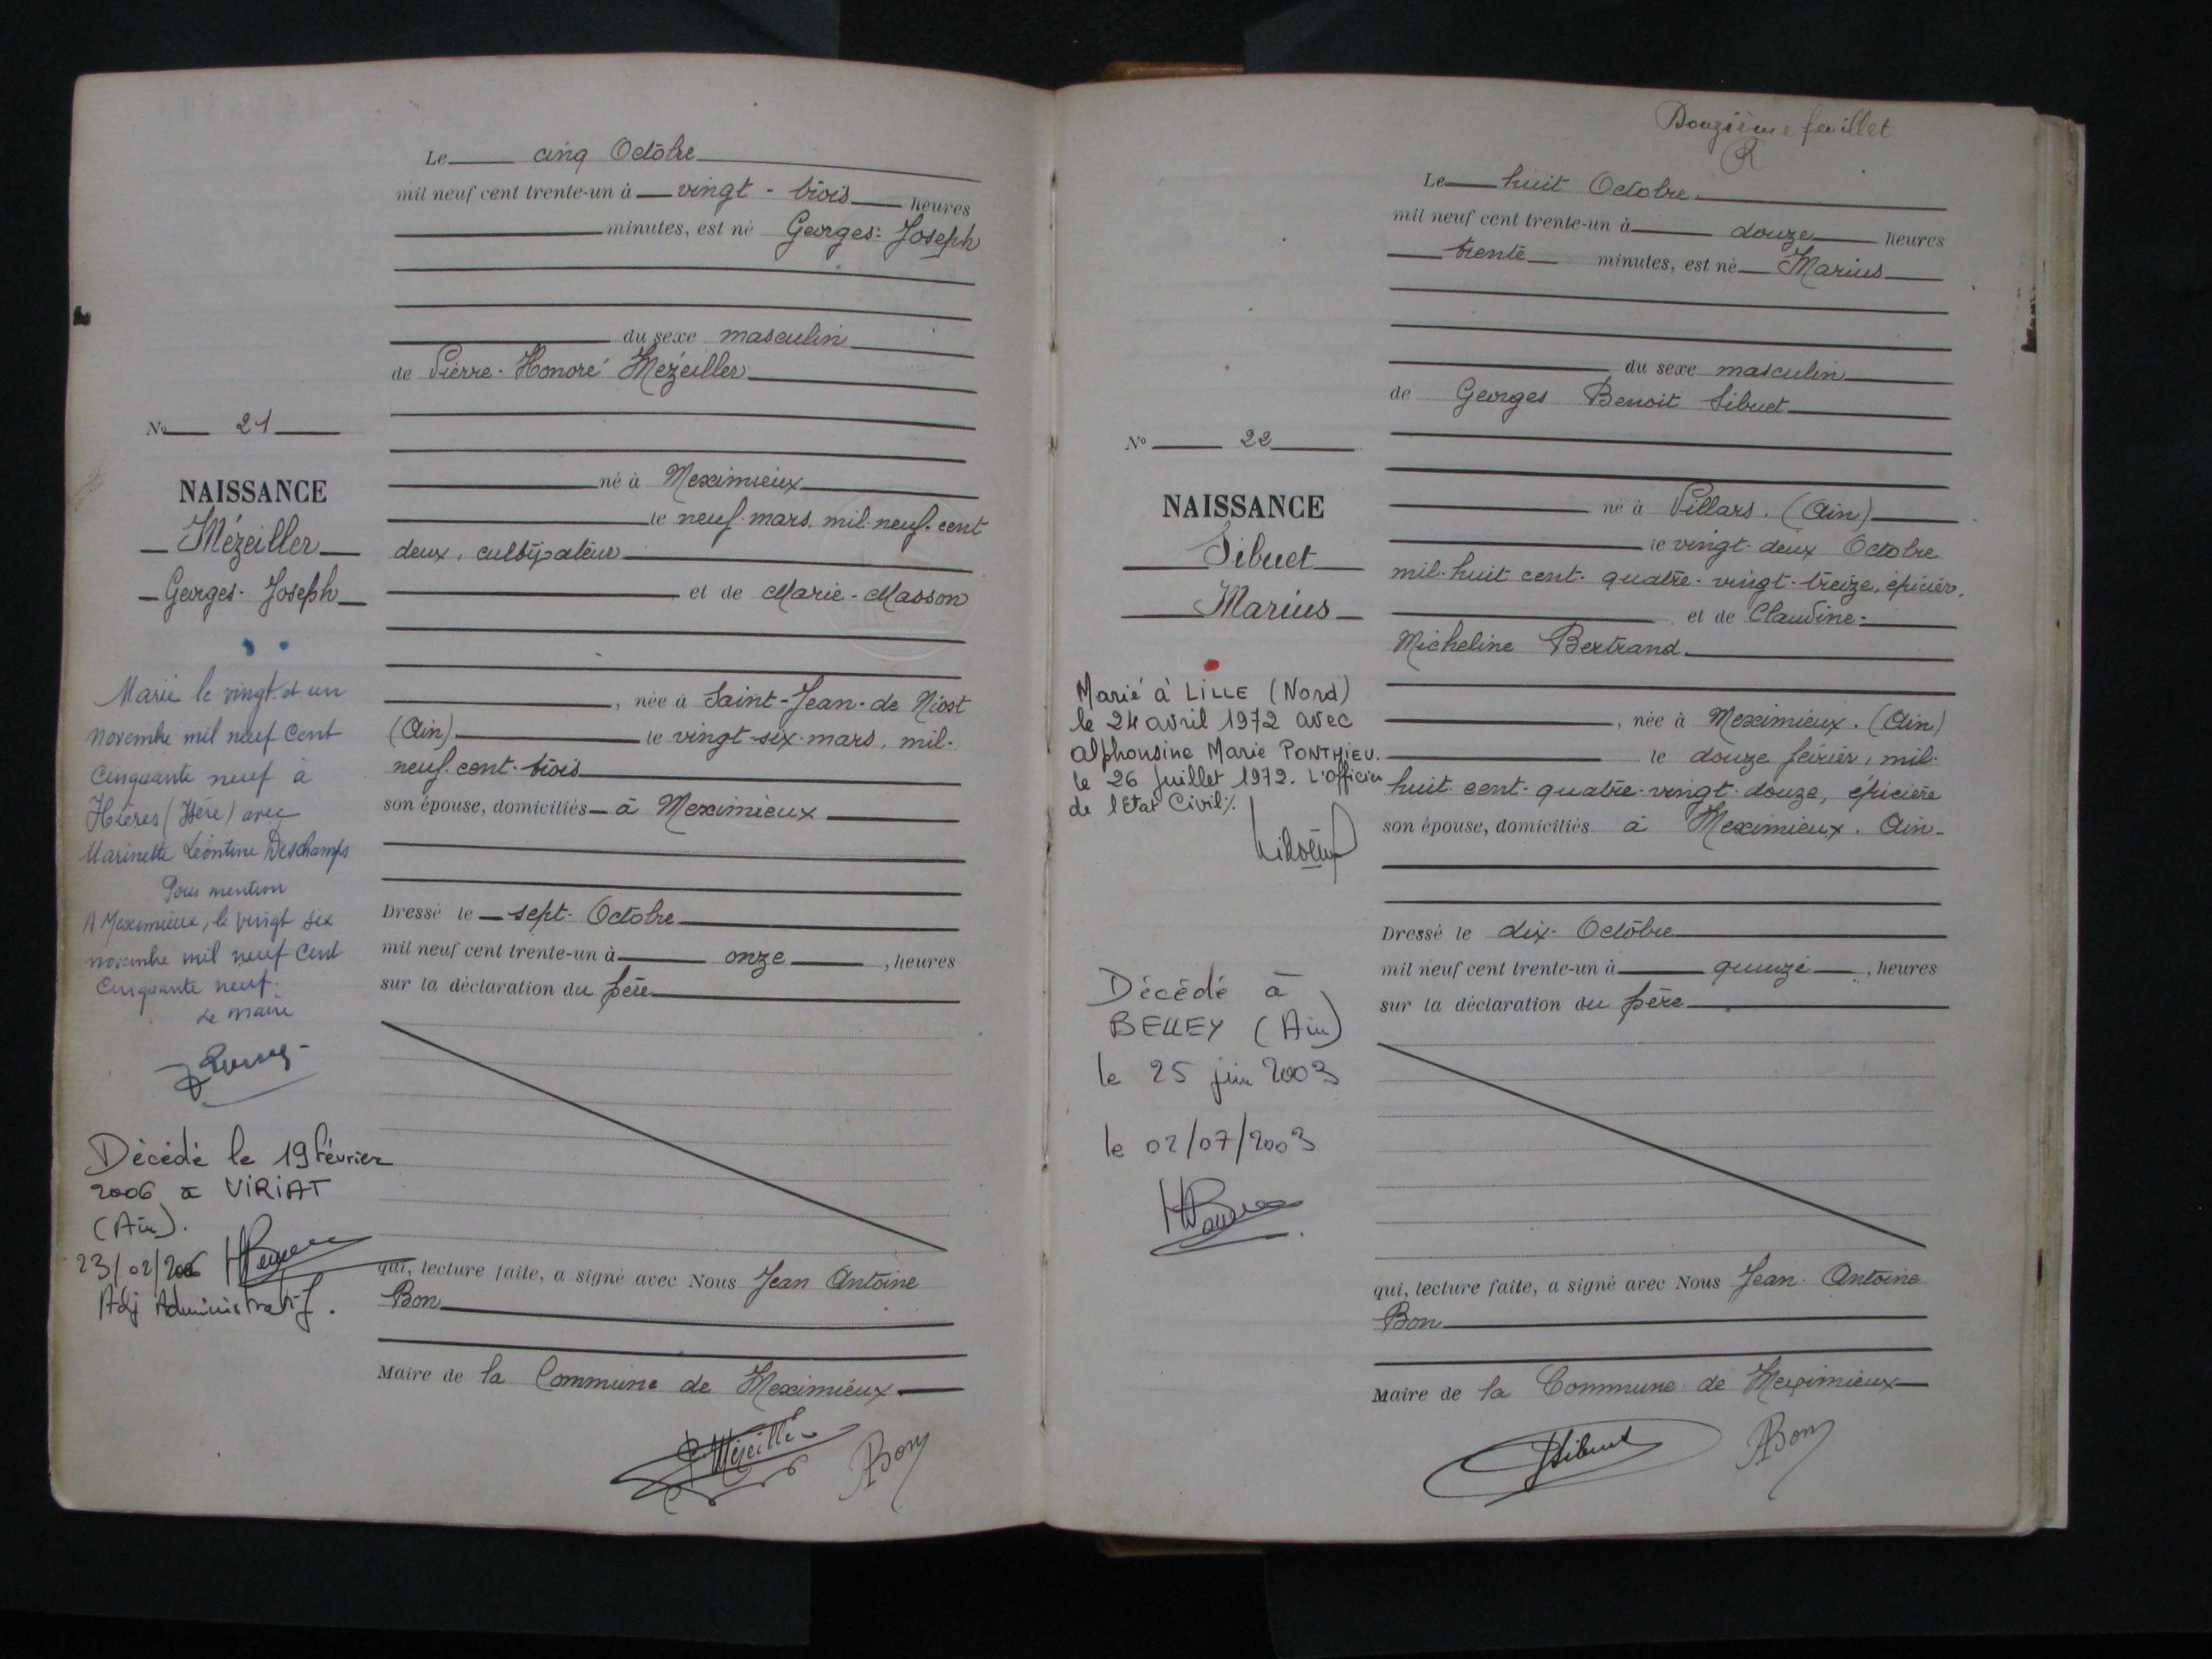 Le cinq Octobre
mil neuf cent trente-un à vingt-trois heures
minutes, est né Georges-Joseph
du sexe masculin
de Pierre-Honoré Mézeiller
né à Meximieux
le neuf mars, mil-neuf-cent
deux, cultivateur
et de Marie-Masson
, née à Saint-Jean-de Niost
(Ain) le vingt-six-mars, mil-
neuf-cent-trois
son épouse, domiciliés à Meximieux
Dressé le sept-Octobre
mil neuf cent trente-un à onze, heures
sur la déclaration du père
qui, lecture faite, a signé avec Nous Jean Antoine
Bon
Maire de la Commune de Meximieux
P. Mézeiller ABon
No 21
NAISSANCE
Mézeiller
Georges-Joseph
Marié le vingt et un
novembre mil neuf cent
cinquante neuf à
Hières (Isère) avec
Marinette Léontine Deschamps
Pour mention
A Meximieux, le vingt six
novembre mil neuf cent
cinquante neuf.
Le maire
Décédé le 19 février
2006 à VIRIAT
(Ain).
23/02/2006
Adj Administratif.
Douzième feuillet
Le huit Octobre
mil neuf cent trente-un à douze heures
trente minutes, est né Marius
du sexe masculin
de Georges Benoit Sibuet
né à Villars. (Ain)
le vingt-deux Octobre
mil-huit cent-quatre-vingt-treize, épicier,
et de Claudine-
Micheline Bertrand.
, née à Meximieux. (Ain)
le douze février, mil-
huit-cent-quatre-vingt-douze, épicière
son épouse, domiciliés à Meximieux. Ain-
Dressé le dix-Octobre
mil neuf cent trente-un à quinze, heures
sur la déclaration du père
qui, lecture faite, a signé avec Nous Jean Antoine
Bon
Maire de la Commune de Meximieux
GSibuet ABon
No 22
NAISSANCE
Sibuet
Marius
Marié à LILLE (Nord)
le 24 avril 1972 avec
Alphonsine Marie PONTHIEU.
le 26 Juillet 1972. L'Officier
de l'Etat Civil%.
Décédé à
BELLEY (Ain)
le 25 juin 2003
le 02/07/2003